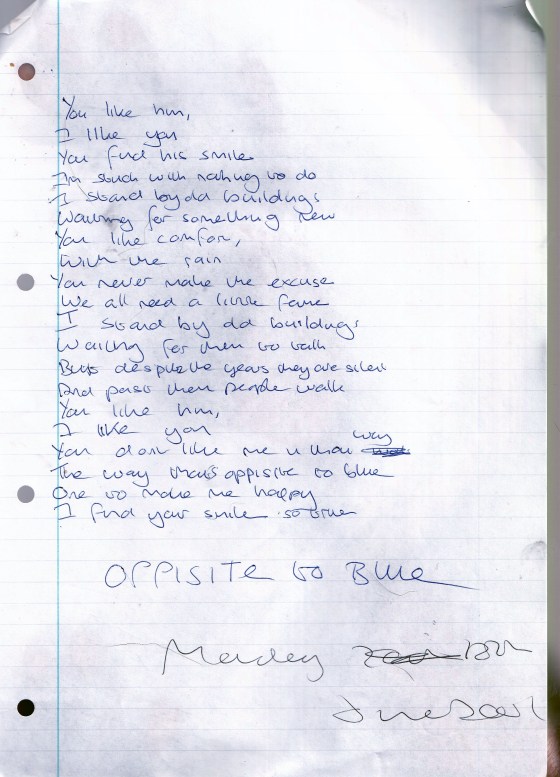 You like him,
I like you
You find his smile
I'm stuck with nothing to do
I stand by old buildings
Waiting for something new
You like comfort,
With the rain
You never make the excuse
We all need a little fame
I stand by old buildings
Waiting for them to talk
But despite the years they are silent
And past them people walk
You like him,
I like you
You dont like me in that way
The way thats oppisite to blue
One to make me happy
I find your smile so true
OPPISITE to Blue
18th
June